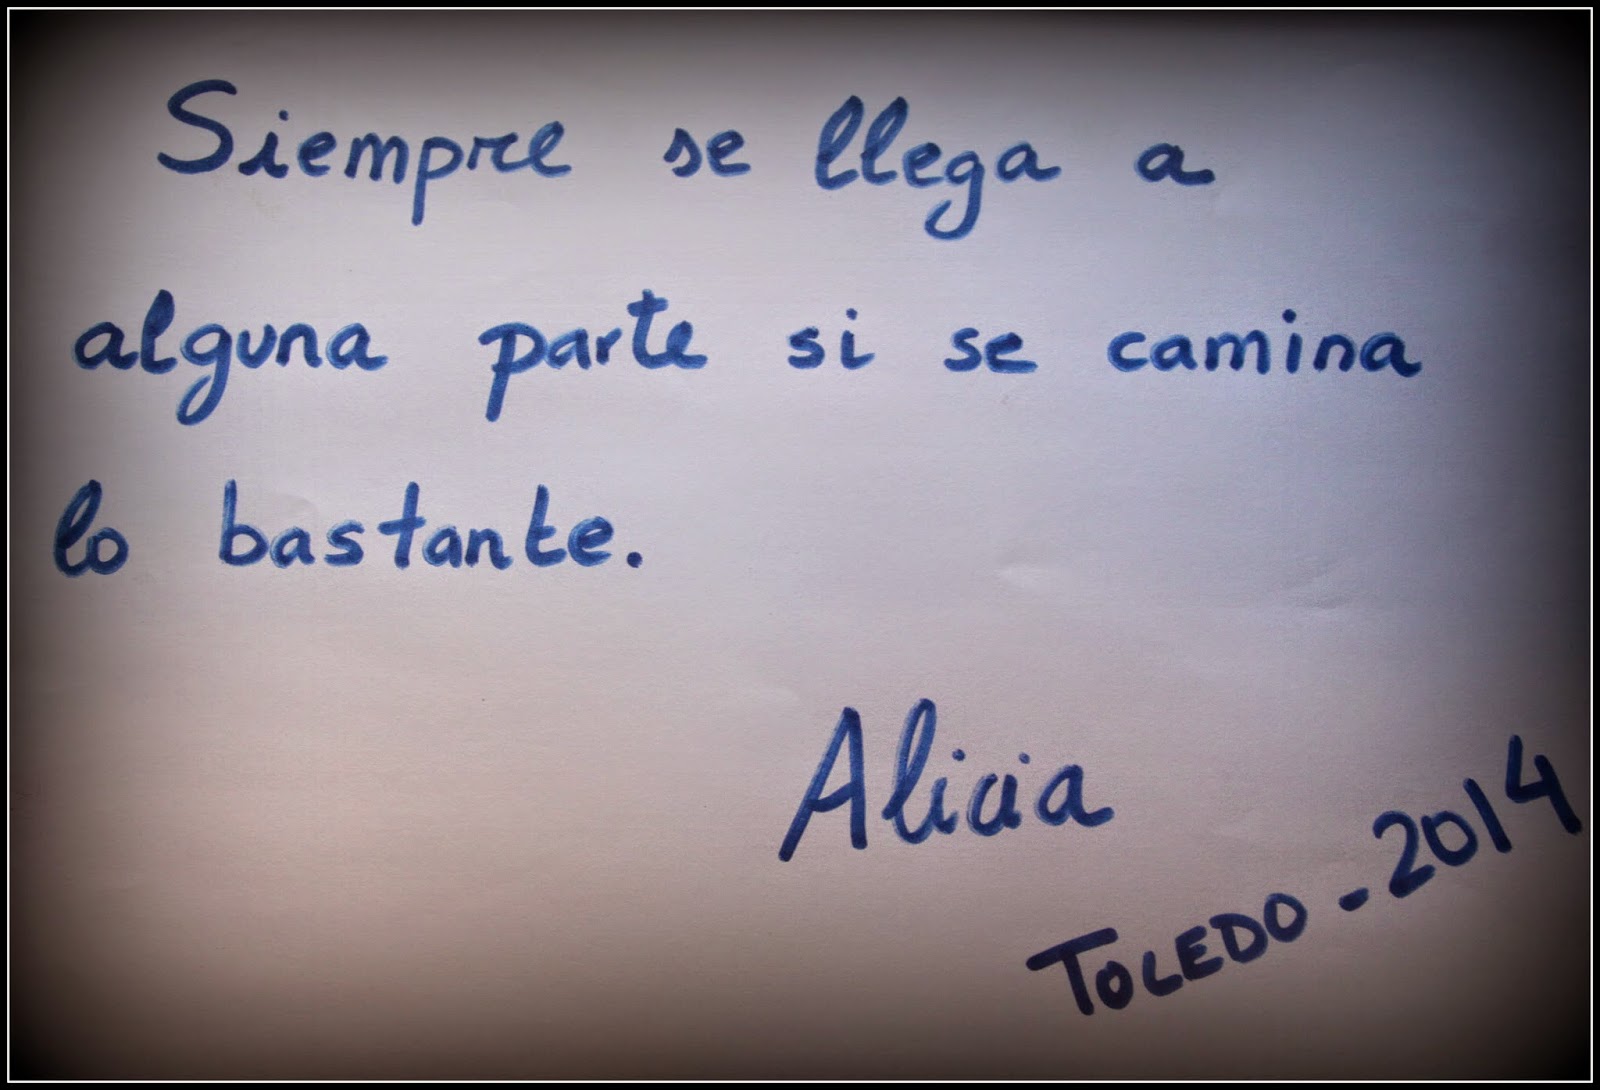 Siempre se llega a
alguna parte si se camina
lo bastante.
Alicia
TOLEDO - 2014